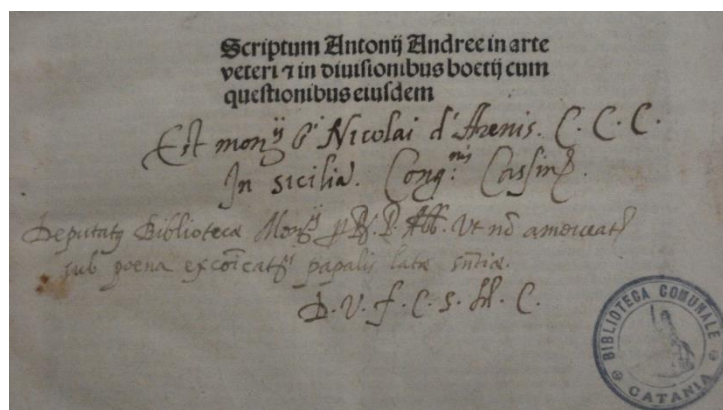 Scriptum Antonij Andree in arte
veteri ⁊ in diuisionibus boetij cum
questionibus eiusdem
Est monrij Sti Nicolai d' Arenis. C. C. C.
In sicilia. Congnis Cassin
Deputatq Biblioteca Monrij P. Abb. Ut nō amoueat
sub poena papalis latæ sntiæ.
D. V. f. C. S. M. C.
BIBLIOTECA COMUNALE
CATANIA